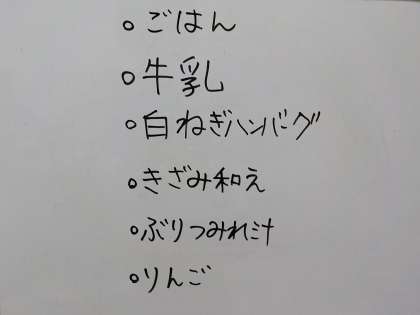 ○ごはん
○牛乳
○白ねぎハンバーグ
○きざみ和え
○ぶりつみれ汁
○りんご